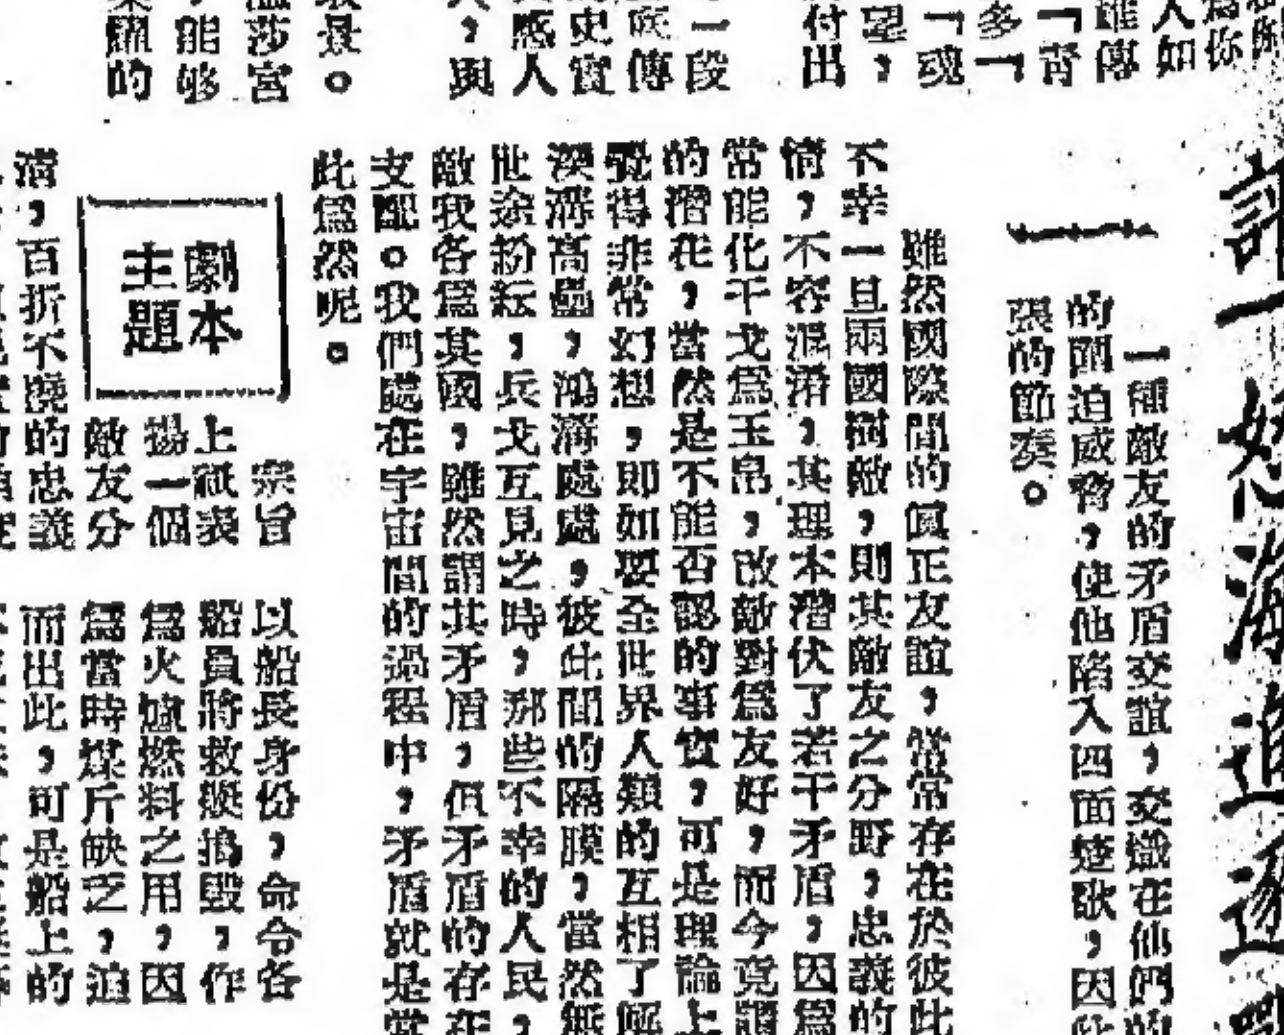 為你
人如
雖傳
「宵
多「
「魂
望,
付出
一段
庭傳
史實
感人
,與
景。
溫莎宮
,能够
的
評一怒海追逐
一種敵友的矛盾交誼,交熾在他們的
的壓迫威脅,使他陷入四面楚歌,因
張的節奏。
雖然國際間的眞正友誼,常常存在於彼此
不幸一旦兩國樹敵,則其敵友之分野,忠義的
情,不容混淆,其理本潛伏了若干矛盾,因爲
常能化干戈爲玉帛,改敵對爲友好,而今竟謂
的潛在,當然是不能否認的事實,可是理論上
覺得非常幻想,即如要全世界人類的互相了解
深溝高壘,鴻溝處處,彼此間的隔膜,當然無
世途紛紜,兵戈互見之時,那些不幸的人民,
敵我各爲其國,雖然謂其矛盾,但矛盾的存在
支配。我們處在宇宙間的過程中,矛盾就是當
此爲然呢。
劇本
主題
宗旨
上祇表
揚一個
敵友分
淸,百折不撓的忠義
以船長身份,命令各
船員將救艇搗毀,作
爲火爐燃料之用,因
爲當時煤斤缺乏,迫
而出此,可是船上的